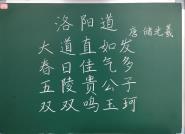 洛阳道
唐 储光羲
大道直如发
春日佳气多
五陵贵公子
双双鸣玉珂